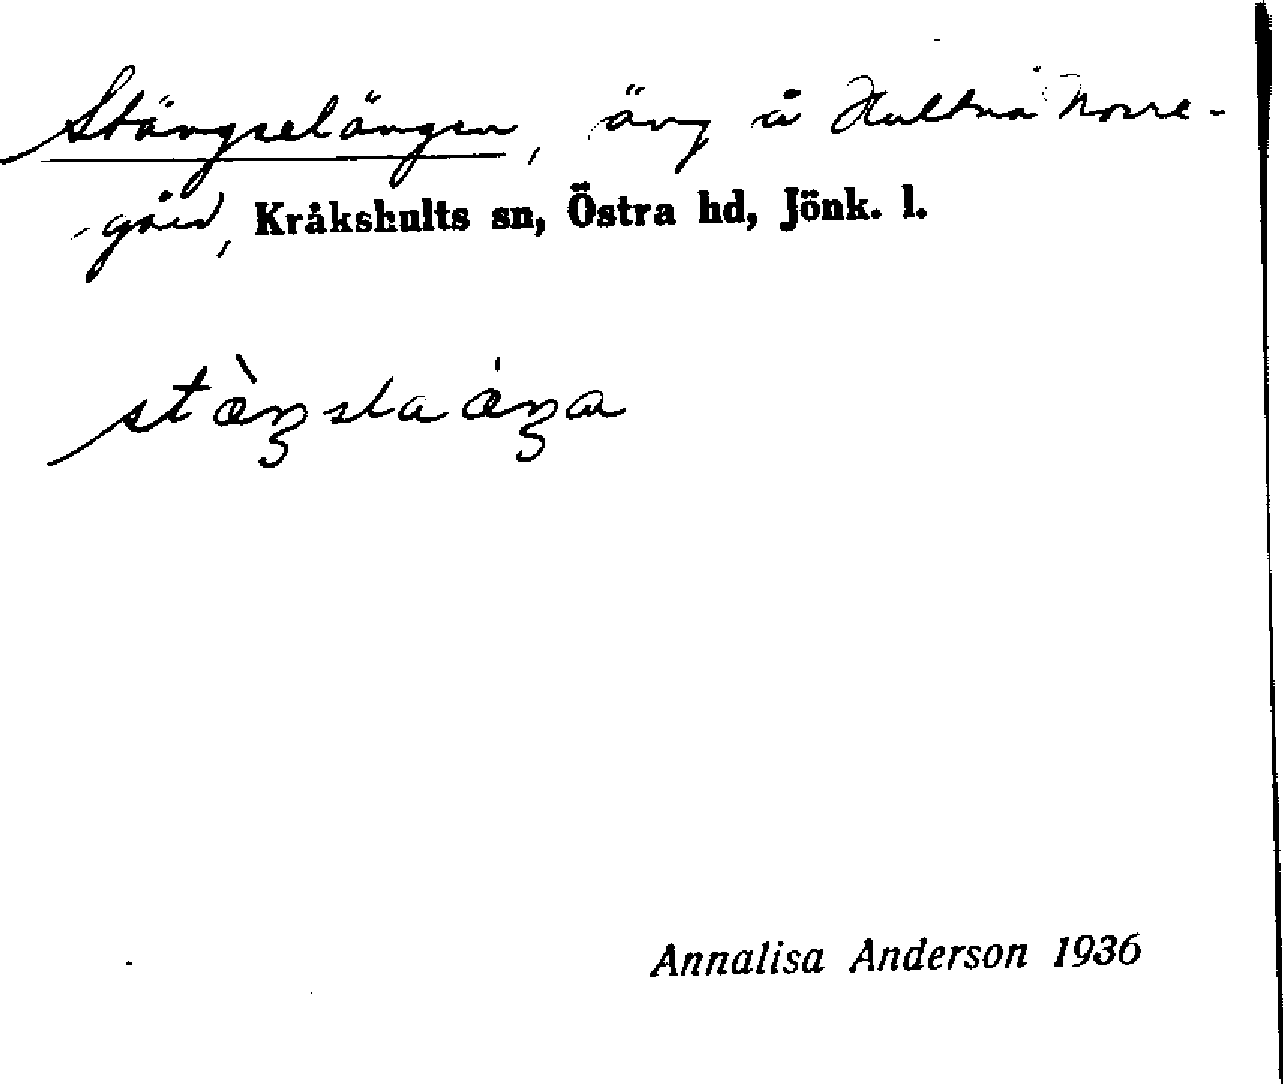 Stängselängen, äng å Hultna Norre-
-gård, Kråkshults sn, Östra hd, Jönk. l.
stæ̀ŋsla æ̀ŋa
Annalisa Anderson 1936